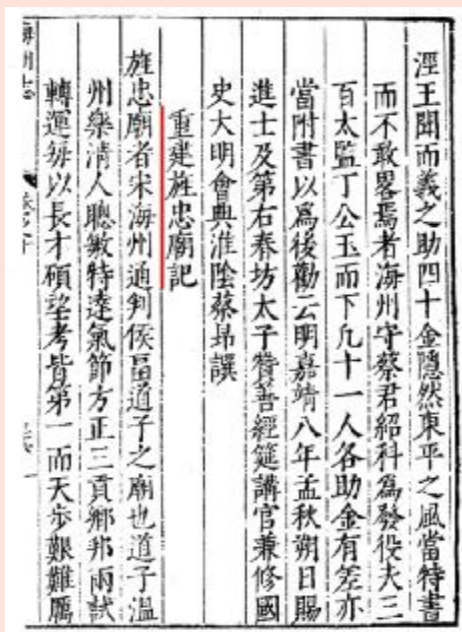 涇王聞而義之助四十金隱然東平之風當特書
而不敢畧焉者海州守蔡君紹科為發役夫三
百太監丁公玉而下凡十一人各助金有差亦
當附書以爲後勸云明嘉靖八年孟秋朔日賜
進士及第右春坊太子贊善經筵講官兼修國
史大明會典淮陰蔡昻譔
重建旌忠廟記
旌忠廟者宋海州通判侯畐道子之廟也道子溫
州樂清人聰敏特達氣節方正三貢鄉邦兩試
轉運每以長才碩望考皆第一而天步艱難厲
海州志